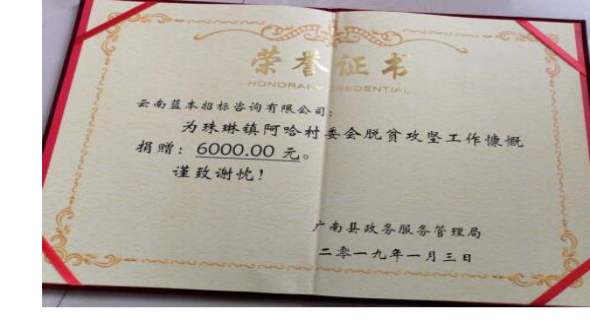 荣誉证书
HONORARY CREDENTIAL
云南蓝本招标咨询有限公司:
为珠琳镇阿哈村委会脱贫攻坚工作慷慨
捐赠:6000.00 元。
谨致谢忱!
广南县政务服务管理局
二零一九年一月三日